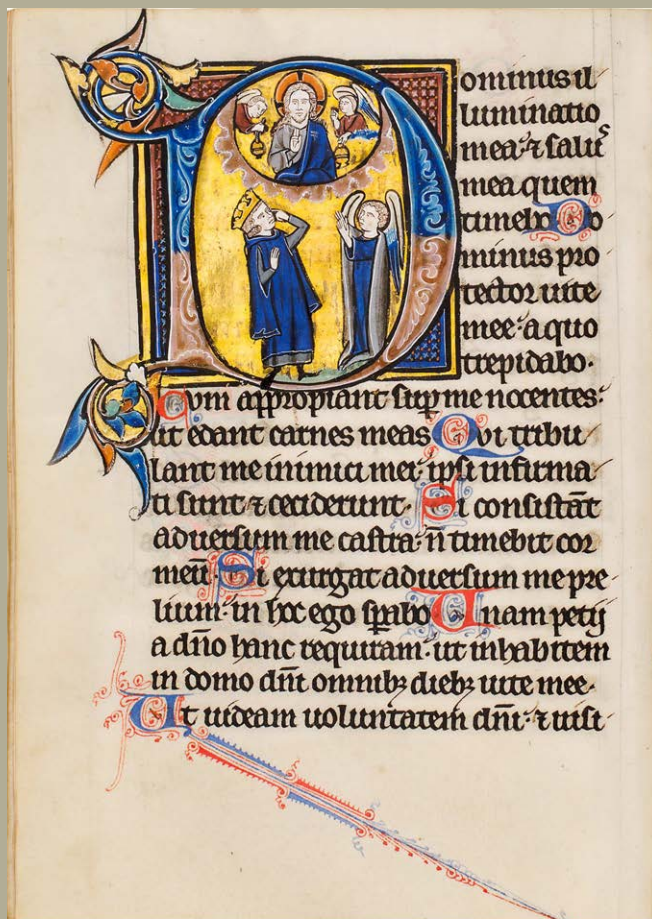 Dominus il
luminatio
mea· ⁊ saluſ
mea quem
timebo Do
minus pro
tector uite
mee· a quo
trepidabo·
Cum appropiant sup̄ me nocentes·
ut edant carnes meas Qui tribu
lant me inimici mei· ipsi infirma
ti sunt ⁊ ceciderunt· Si consistāt
aduersum me castra· n̄ timebit cor
meū· Si exurgat aduersum me pre
lium· in hoc ego sꝑabo Unam petij
a dn̄o hanc requiram· ut inhabitem
in domo dn̄i omnibꝫ diebꝫ uite mee·
Ut uideam uoluntatem dn̄i· ⁊ uisi